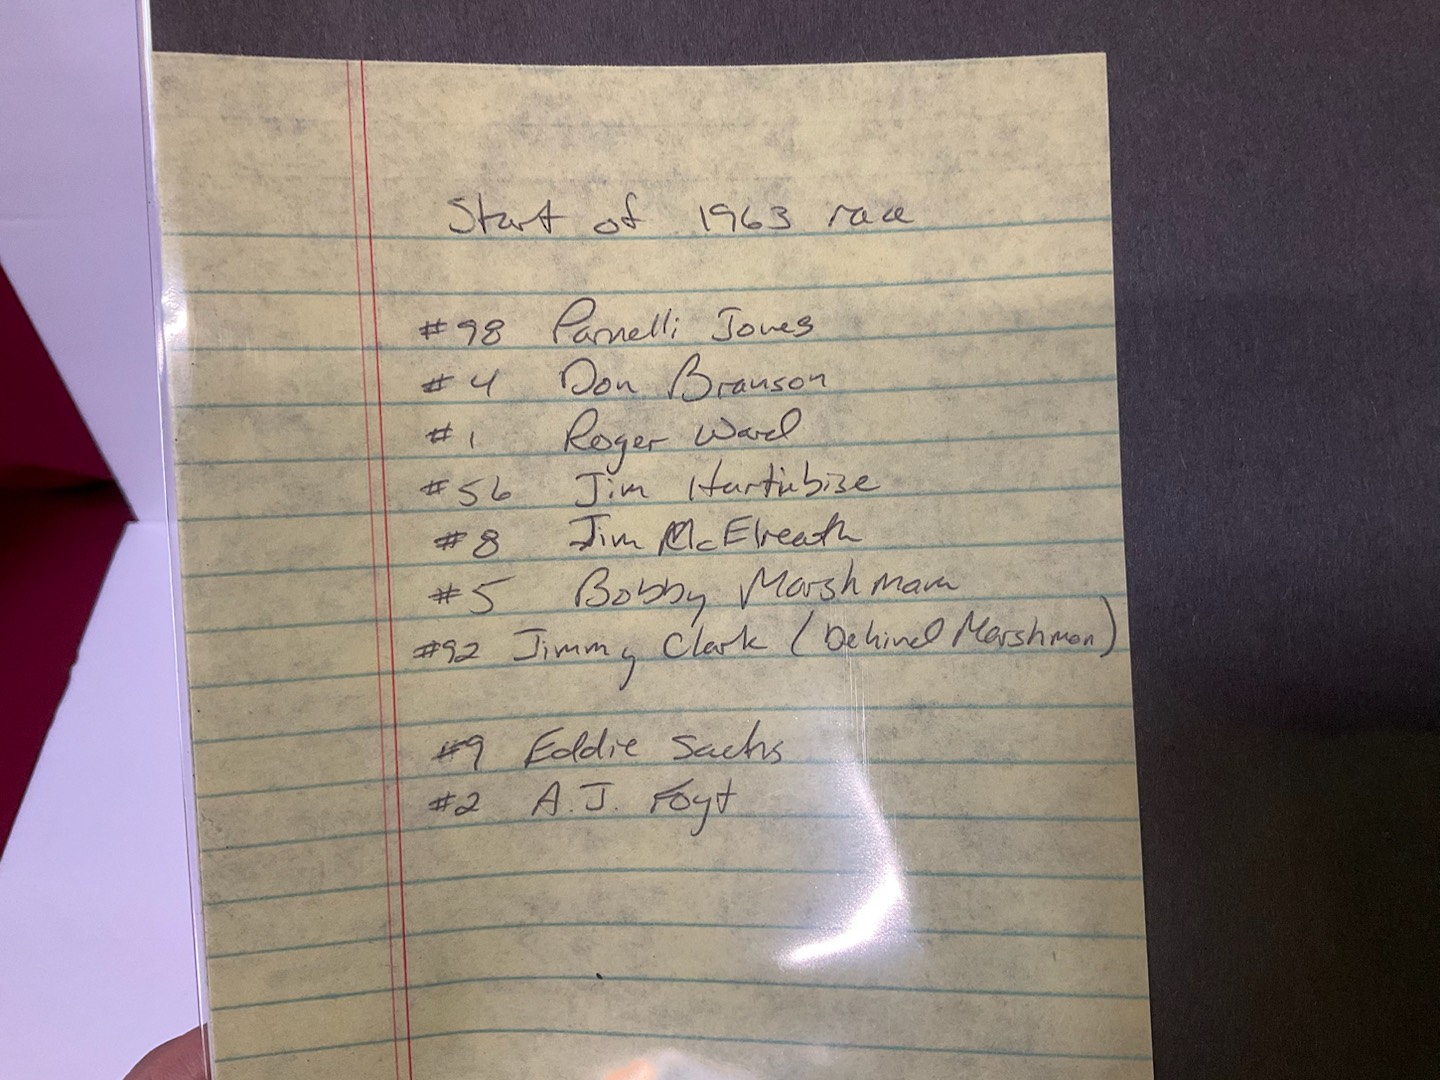 Start of 1963 race
#98 Parnelli Jones
#4 Don Branson
#1 Roger Ward
#56 Jim Hurtubise
#8 Jim McElreath
#5 Bobby Marshman
#92 Jimmy Clark (behind Marshman)
#9 Eddie Sachs
#2 A.J. Foyt